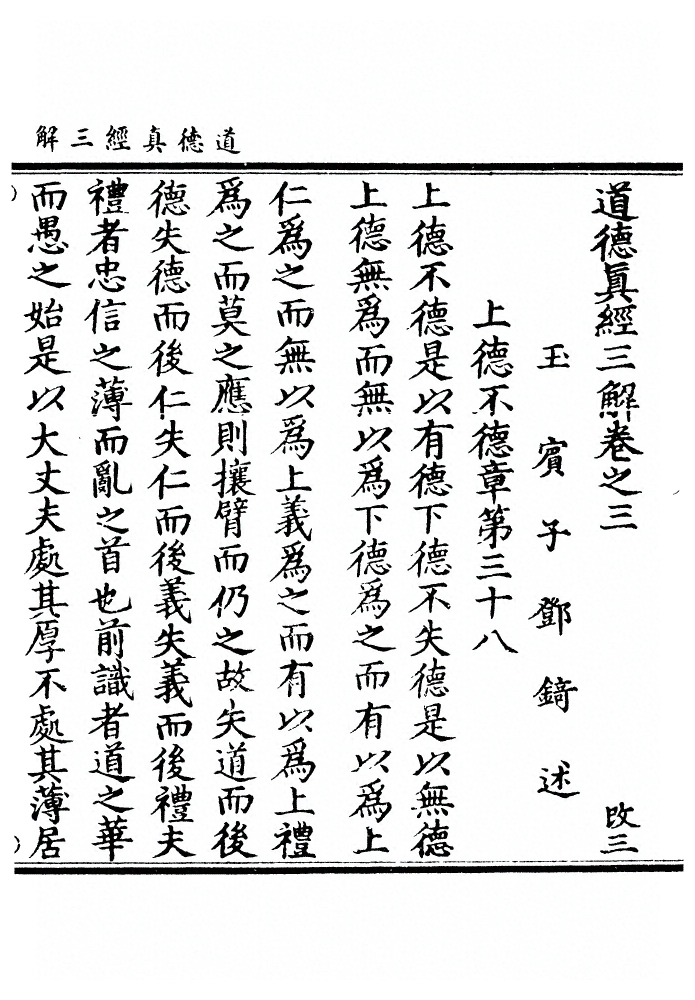 道德真經三解
道德眞經三解卷之三 改三
玉賓子鄧錡述
上德不德章第三十八
上德不德是以有德下德不失德是以無德
上德無爲而無以爲下德爲之而有以爲上
仁爲之而無以爲上義爲之而有以爲上禮
爲之而莫之應則攘臂而仍之故失道而後
德失德而後仁失仁而後義失義而後禮夫
禮者忠信之薄而亂之首也前識者道之華
而愚之始是以大丈夫處其厚不處其薄居